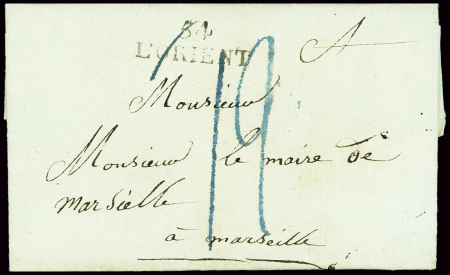 54
L'ORIENT
A
Monsieur
Monsieur le maire de
marseille
à marseille